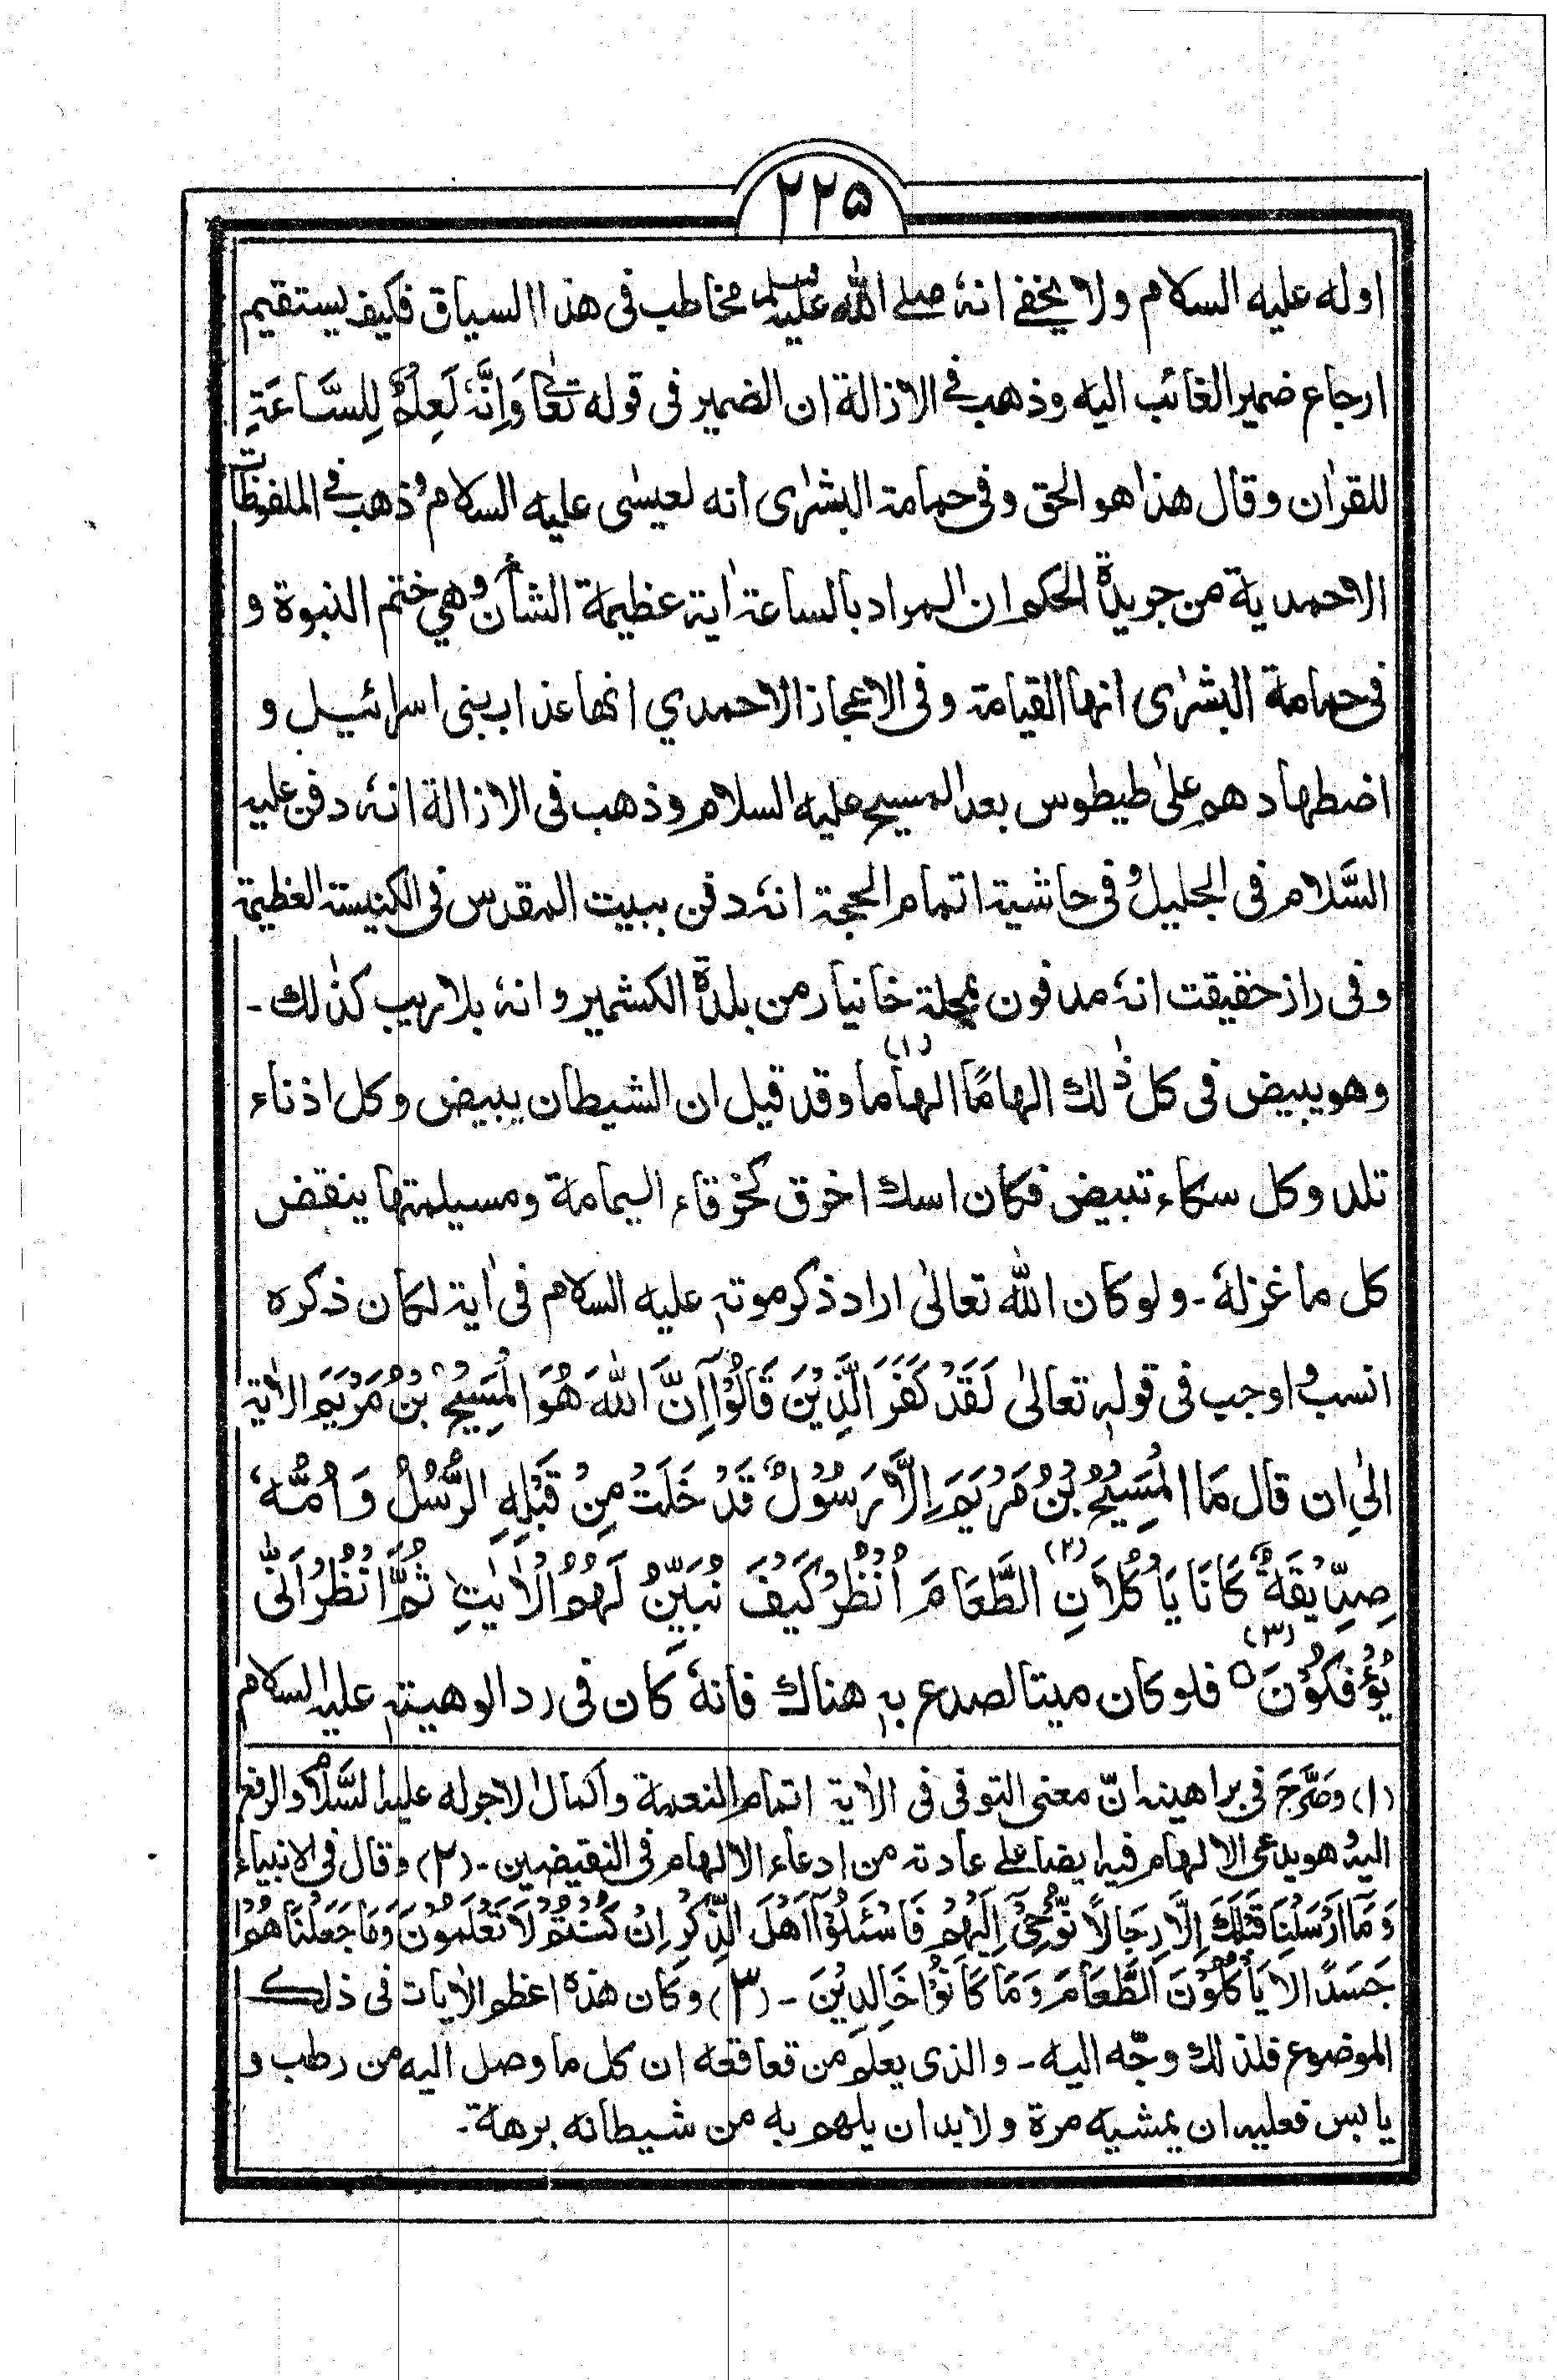 ۲۲۵
اوله عليه السلام ولا يخفى انهٗ صلى الله عليه وسلم مخاطب فى هذا السياق فكيف يستقيم
ارجاع ضمير الغائب اليه وذهب فى الازالة ان الضمير فى قوله تعالٰى وَاِنَّهٗ لَعِلْمٌ لِلسَّاعَةِ
للقراٰن وقال هذا هو الحق وفى حمامة البشرٰى انه لعيسٰى عليه السلام وذهب فى الملفوظات
الاحمدية من جريدة الحكم ان المراد بالساعة اٰية عظيمة الشأن وهي ختم النبوة و
فى حمامة البشرٰى انها القيامة وفى الاعجاز الاحمدي انها عذاب بنى اسرائيل و
اضطهادهم على طيطوس بعد المسيح عليه السلام وذهب فى الازالة انهٗ دفن عليه
السَّلام فى الجليل وفى حاشية اتمام الحجة انهٗ دفن ببيت المقدس فى الكنيسة العظيمة
وفى راز حقيقت انهٗ مدفون بمحلة خانيار من بلدة الكشمير وانهٗ بلا ريب كذٰلك ـ
وهو يبيض فى كل ذٰلك الهامًا الهاما (۱) وقد قيل ان الشيطان يبيض وكل اذناء
تلد وكل سكاء تبيض فكان اسك اخرق كخرقاء اليمامة ومسيلمتها ينقض
كل ما غزلهٗ ـ ولو كان الله تعالىٰ اراد ذكر موتهٖ عليه السلام فى اٰية لكان ذكره
انسب واوجب فى قولهٖ تعالىٰ لَقَدْ كَفَرَ الَّذِيْنَ قَالُوْٓا اِنَّ اللّٰهَ هُوَ الْمَسِيْحُ بْنُ مَرْيَمَ الاٰية
الىٰ ان قال مَا الْمَسِيْحُ بْنُ مَرْيَمَ اِلَّا رَسُوْلٌ قَدْ خَلَتْ مِنْ قَبْلِهِ الرُّسُلُ وَاُمُّهٗ
صِدِّيْقَةٌ كَانَا يَأْكُلَانِ (۲) الطَّعَامَ اُنْظُرْ كَيْفَ نُبَيِّنُ لَهُمُ الْاٰيٰتِ ثُمَّ انْظُرْ اَنّٰى
يُؤْفَكُوْنَ (۳) فلو كان ميتا لصدع بهٖ هناك فانهٗ كان فى رد الوهيتهٖ عليه السلام
(۱) وصَرَّحَ فى براهينه انّ معنى التوفى فى الاٰية اتمام النعمة واكمال الاجر له عليه السَّلام والرفع
اليه وهو يدعى الالهام فيه ايضا على عادته من ادعاء الالهام فى النقيضين ـ (۲) وقال فى الانبياء
وَمَا اَرْسَلْنَا قَبْلَكَ اِلَّا رِجَالًا نُّوْحِيْٓ اِلَيْهِمْ فَاسْئَلُوْٓا اَهْلَ الذِّكْرِ اِنْ كُنْتُمْ لَا تَعْلَمُوْنَ وَمَا جَعَلْنَاهُمْ
جَسَدًا لَا يَأْكُلُوْنَ الطَّعَامَ وَمَا كَانُوْا خَالِدِيْنَ ـ (۳) وكان هذه اعظم الاٰيات فى ذلك
الموضوع فلذلك وجّه اليه ـ والذى يعلم من قعاقعه ان كل ما وصل اليه من رطب و
يابس فعليه ان يمشيه مرة ولا بد ان يلهم به من شيطانه برهة ـ